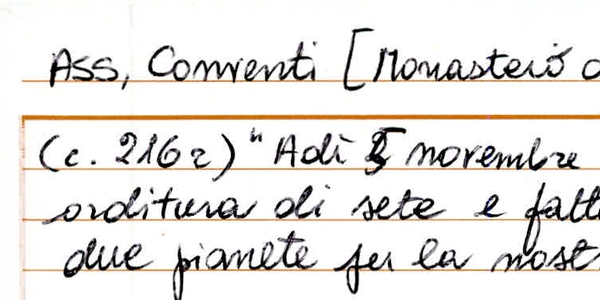 Ass, Conventi [Monastero
(c. 216r) "Adì 5 novembre
orditura di sete e fatt
due pianete per la nost